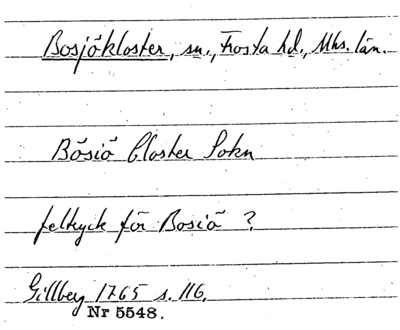 Bosjökloster, sn., Frosta hd., Mhs. län.
Bösiö Closter Sokn
feltryck för Bosiö ?
Gillberg 1765 s. 116.
Nr 5548.